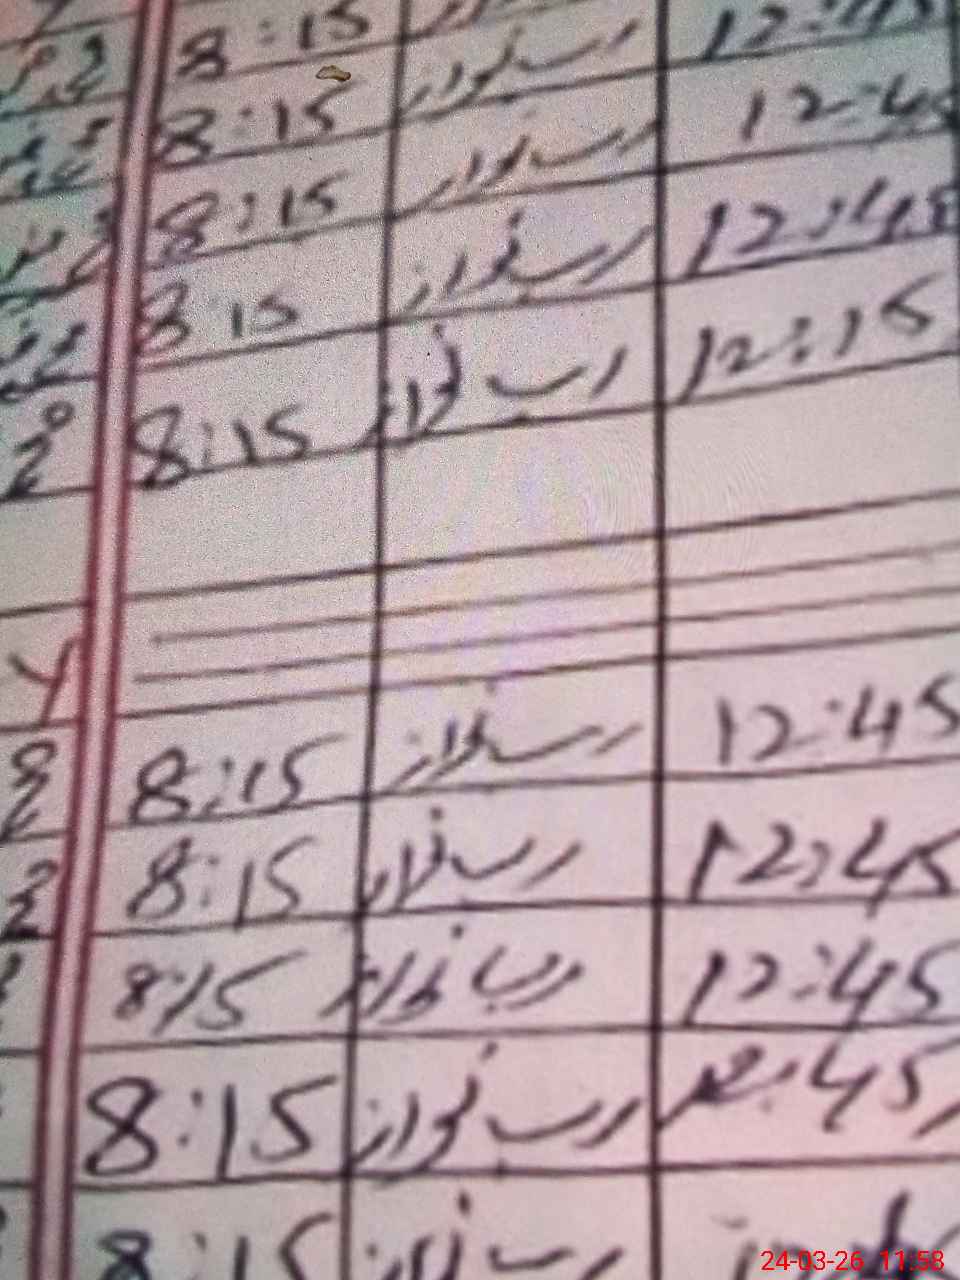 8:15 رب نواز 12:45
8:15 رب نواز 12:45
8:15 رب نواز 12:45
8:15 رب نواز 12:45
8:15 رب نواز 12:15
8:15 رب نواز 12:45
8:15 رب نواز 12:45
8:15 رب نواز 12:45
8:15 رب نواز 12:45
8:15 رب نواز
24-03-26 11:58